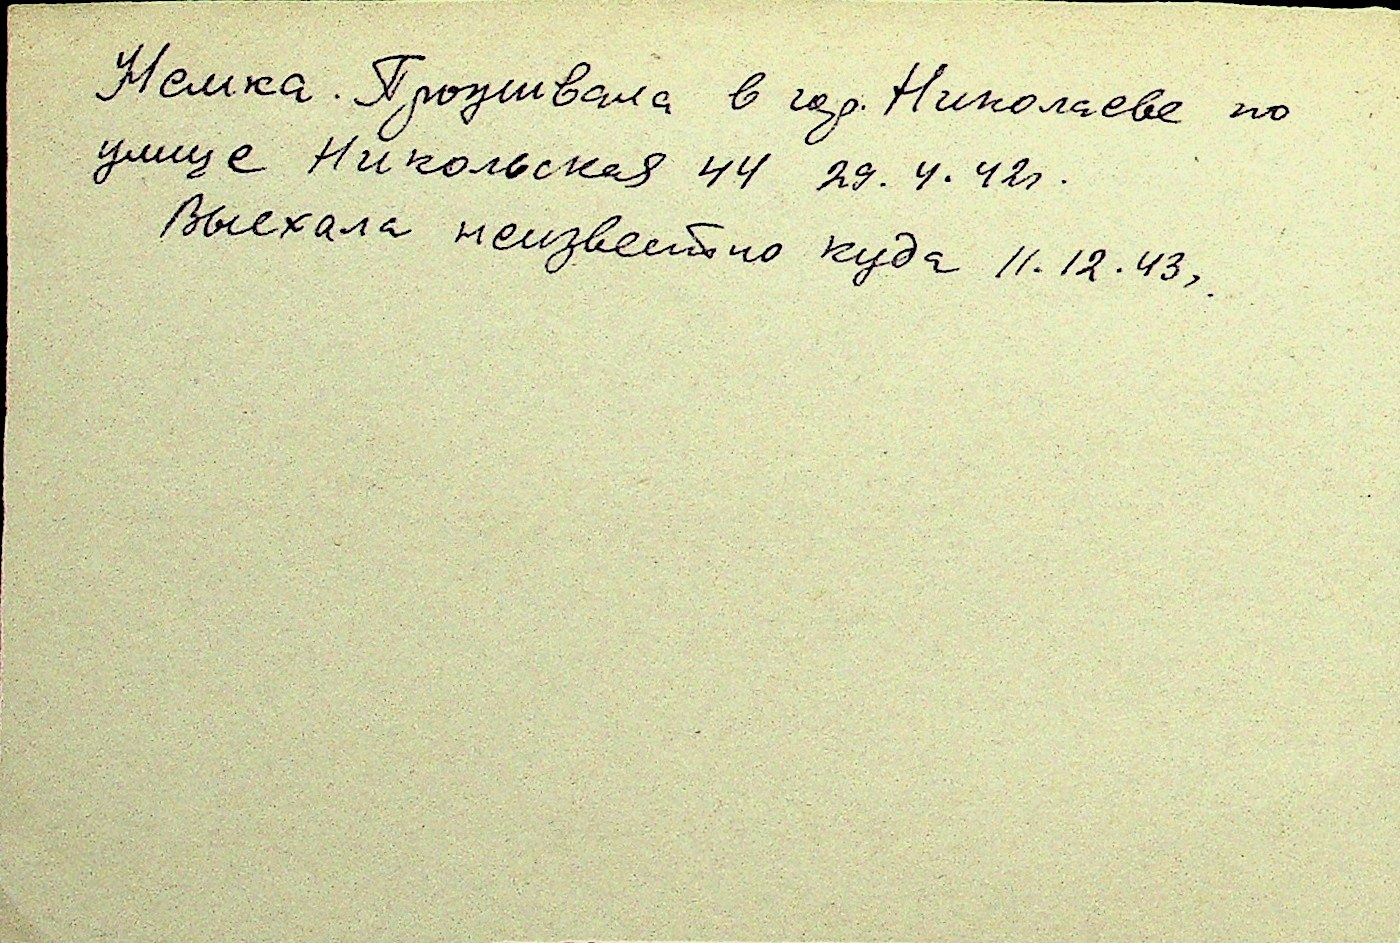 Немка. Проживала в гор. Николаеве по
улице Никольская 44 29.4.42г.
Выехала неизвестно куда 11.12.43г.